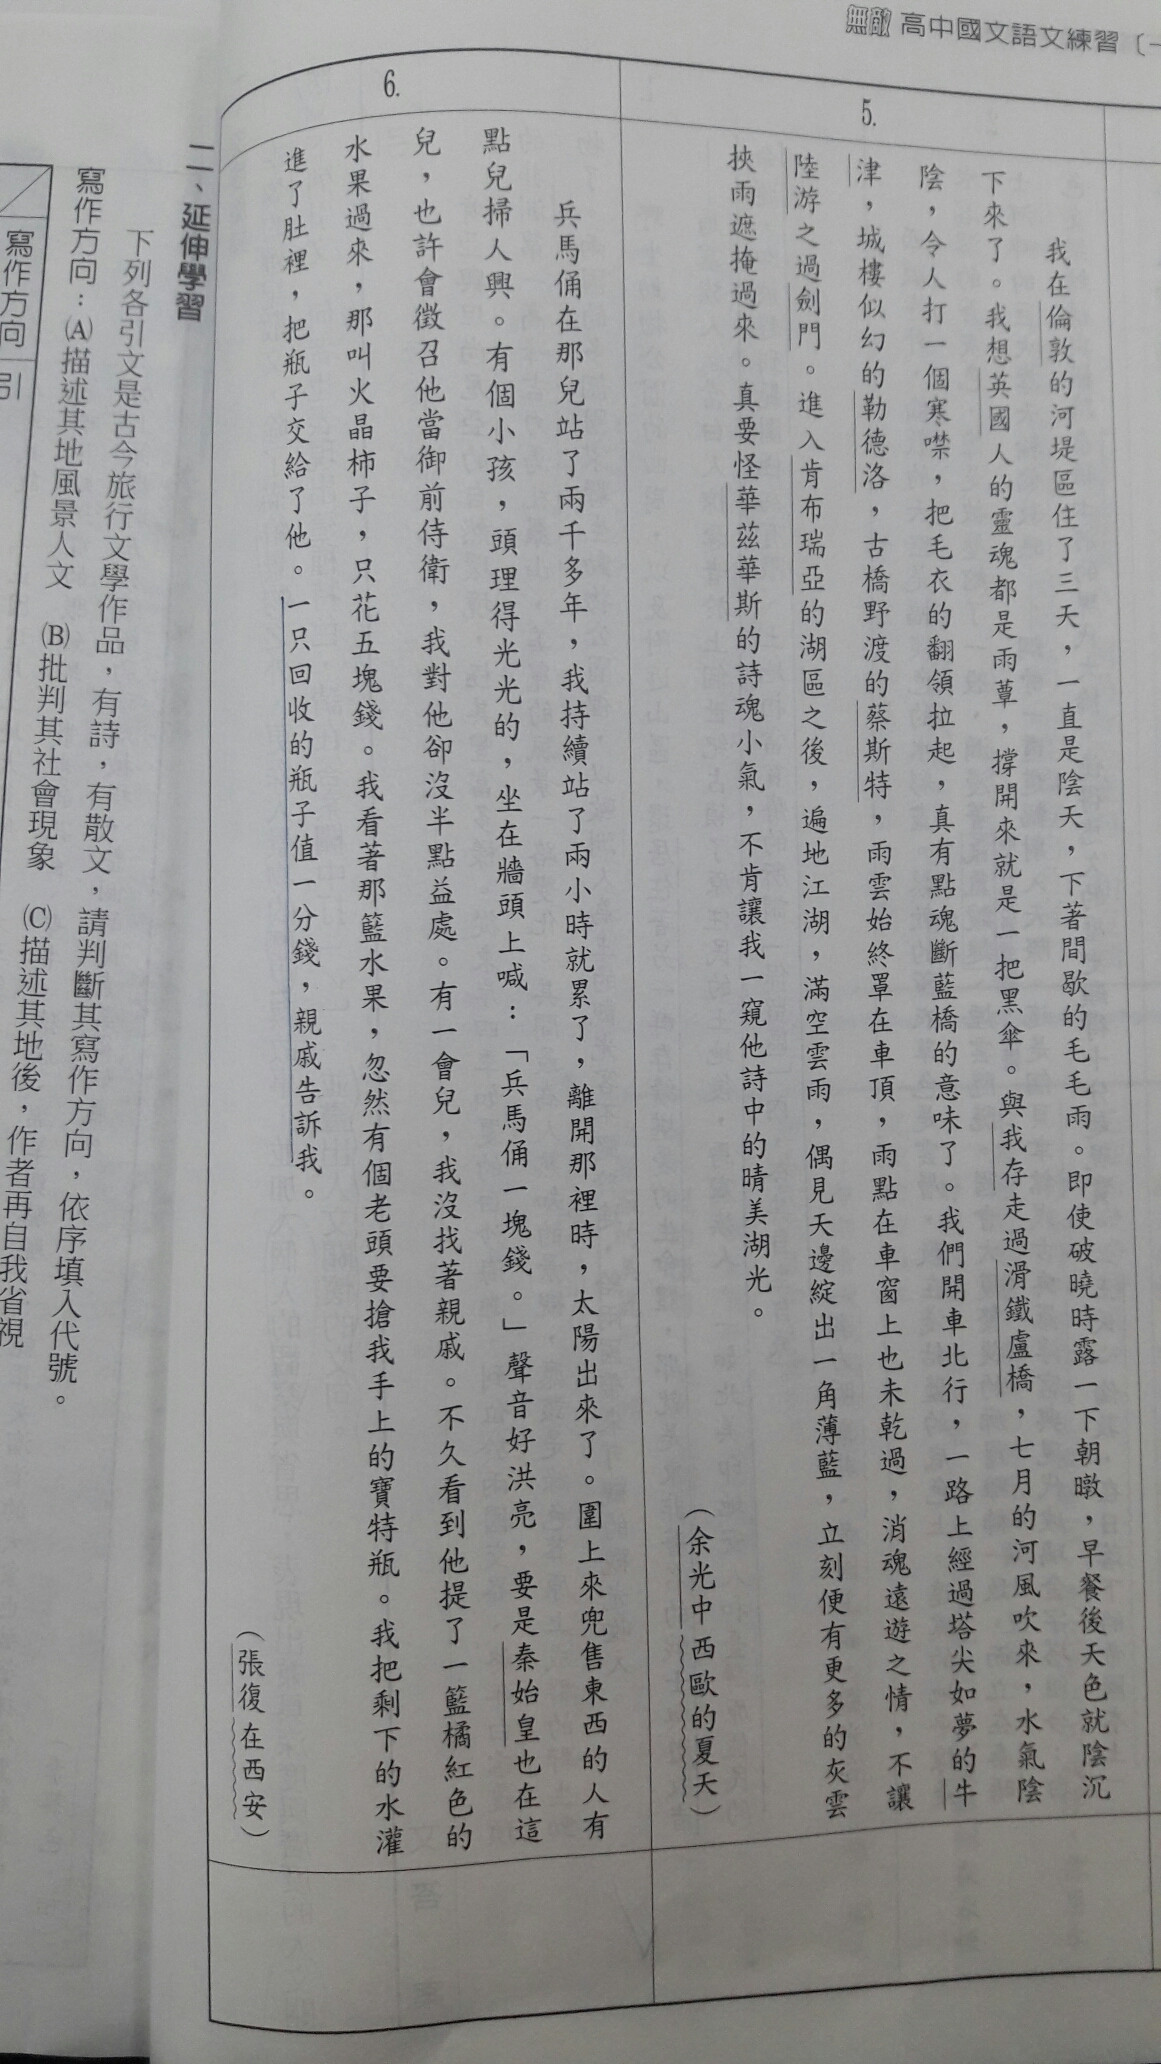 無敵 高中國文語文練習〔一
5.
我在倫敦的河堤區住了三天,一直是陰天,下著間歇的毛毛雨。即使破曉時露一下朝暾,早餐後天色就陰沉
下來了。我想英國人的靈魂都是雨蕈,撐開來就是一把黑傘。與我存走過滑鐵盧橋,七月的河風吹來,水氣陰
陰,令人打一個寒噤,把毛衣的翻領拉起,真有點魂斷藍橋的意味了。我們開車北行,一路上經過塔尖如夢的牛
津,城樓似幻的勒德洛,古橋野渡的蔡斯特,雨雲始終罩在車頂,雨點在車窗上也未乾過,消魂遠遊之情,不讓
陸游之過劍門。進入肯布瑞亞的湖區之後,遍地江湖,滿空雲雨,偶見天邊綻出一角薄藍,立刻便有更多的灰雲
挾雨遮掩過來。真要怪華茲華斯的詩魂小氣,不肯讓我一窺他詩中的晴美湖光。
(余光中 西歐的夏天)
6.
兵馬俑在那兒站了兩千多年,我持續站了兩小時就累了,離開那裡時,太陽出來了。圍上來兜售東西的人有
點兒掃人興。有個小孩,頭理得光光的,坐在牆頭上喊:「兵馬俑一塊錢。」聲音好洪亮,要是秦始皇也在這
兒,也許會徵召他當御前侍衛,我對他卻沒半點益處。有一會兒,我沒找著親戚。不久看到他提了一籃橘紅色的
水果過來,那叫火晶柿子,只花五塊錢。我看著那籃水果,忽然有個老頭要搶我手上的寶特瓶。我把剩下的水灌
進了肚裡,把瓶子交給了他。一只回收的瓶子值一分錢,親戚告訴我。
(張復 在西安)
二、延伸學習
下列各引文是古今旅行文學作品,有詩,有散文,請判斷其寫作方向,依序填入代號。
寫作方向:(A)描述其地風景人文 (B)批判其社會現象 (C)描述其地後,作者再自我省視
寫作方向
引